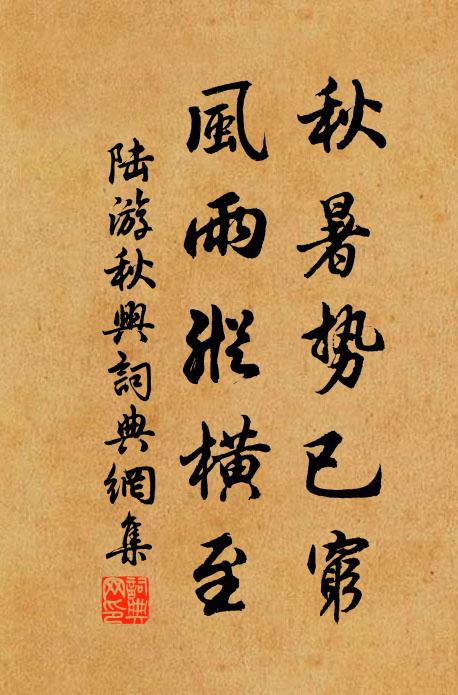 秋暑势已窮
風雨縱橫至
陆游秋興詞典網集
詞典网印